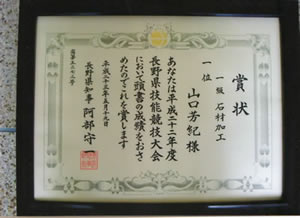 賞状
一級 石材加工
一位 山口芳紀様
あなたは平成二十二年度
長野県技能競技大会
において頭書の成績をおさ
めたのでこれを賞します
平成二十三年五月十九日
長野県知事 阿部守一